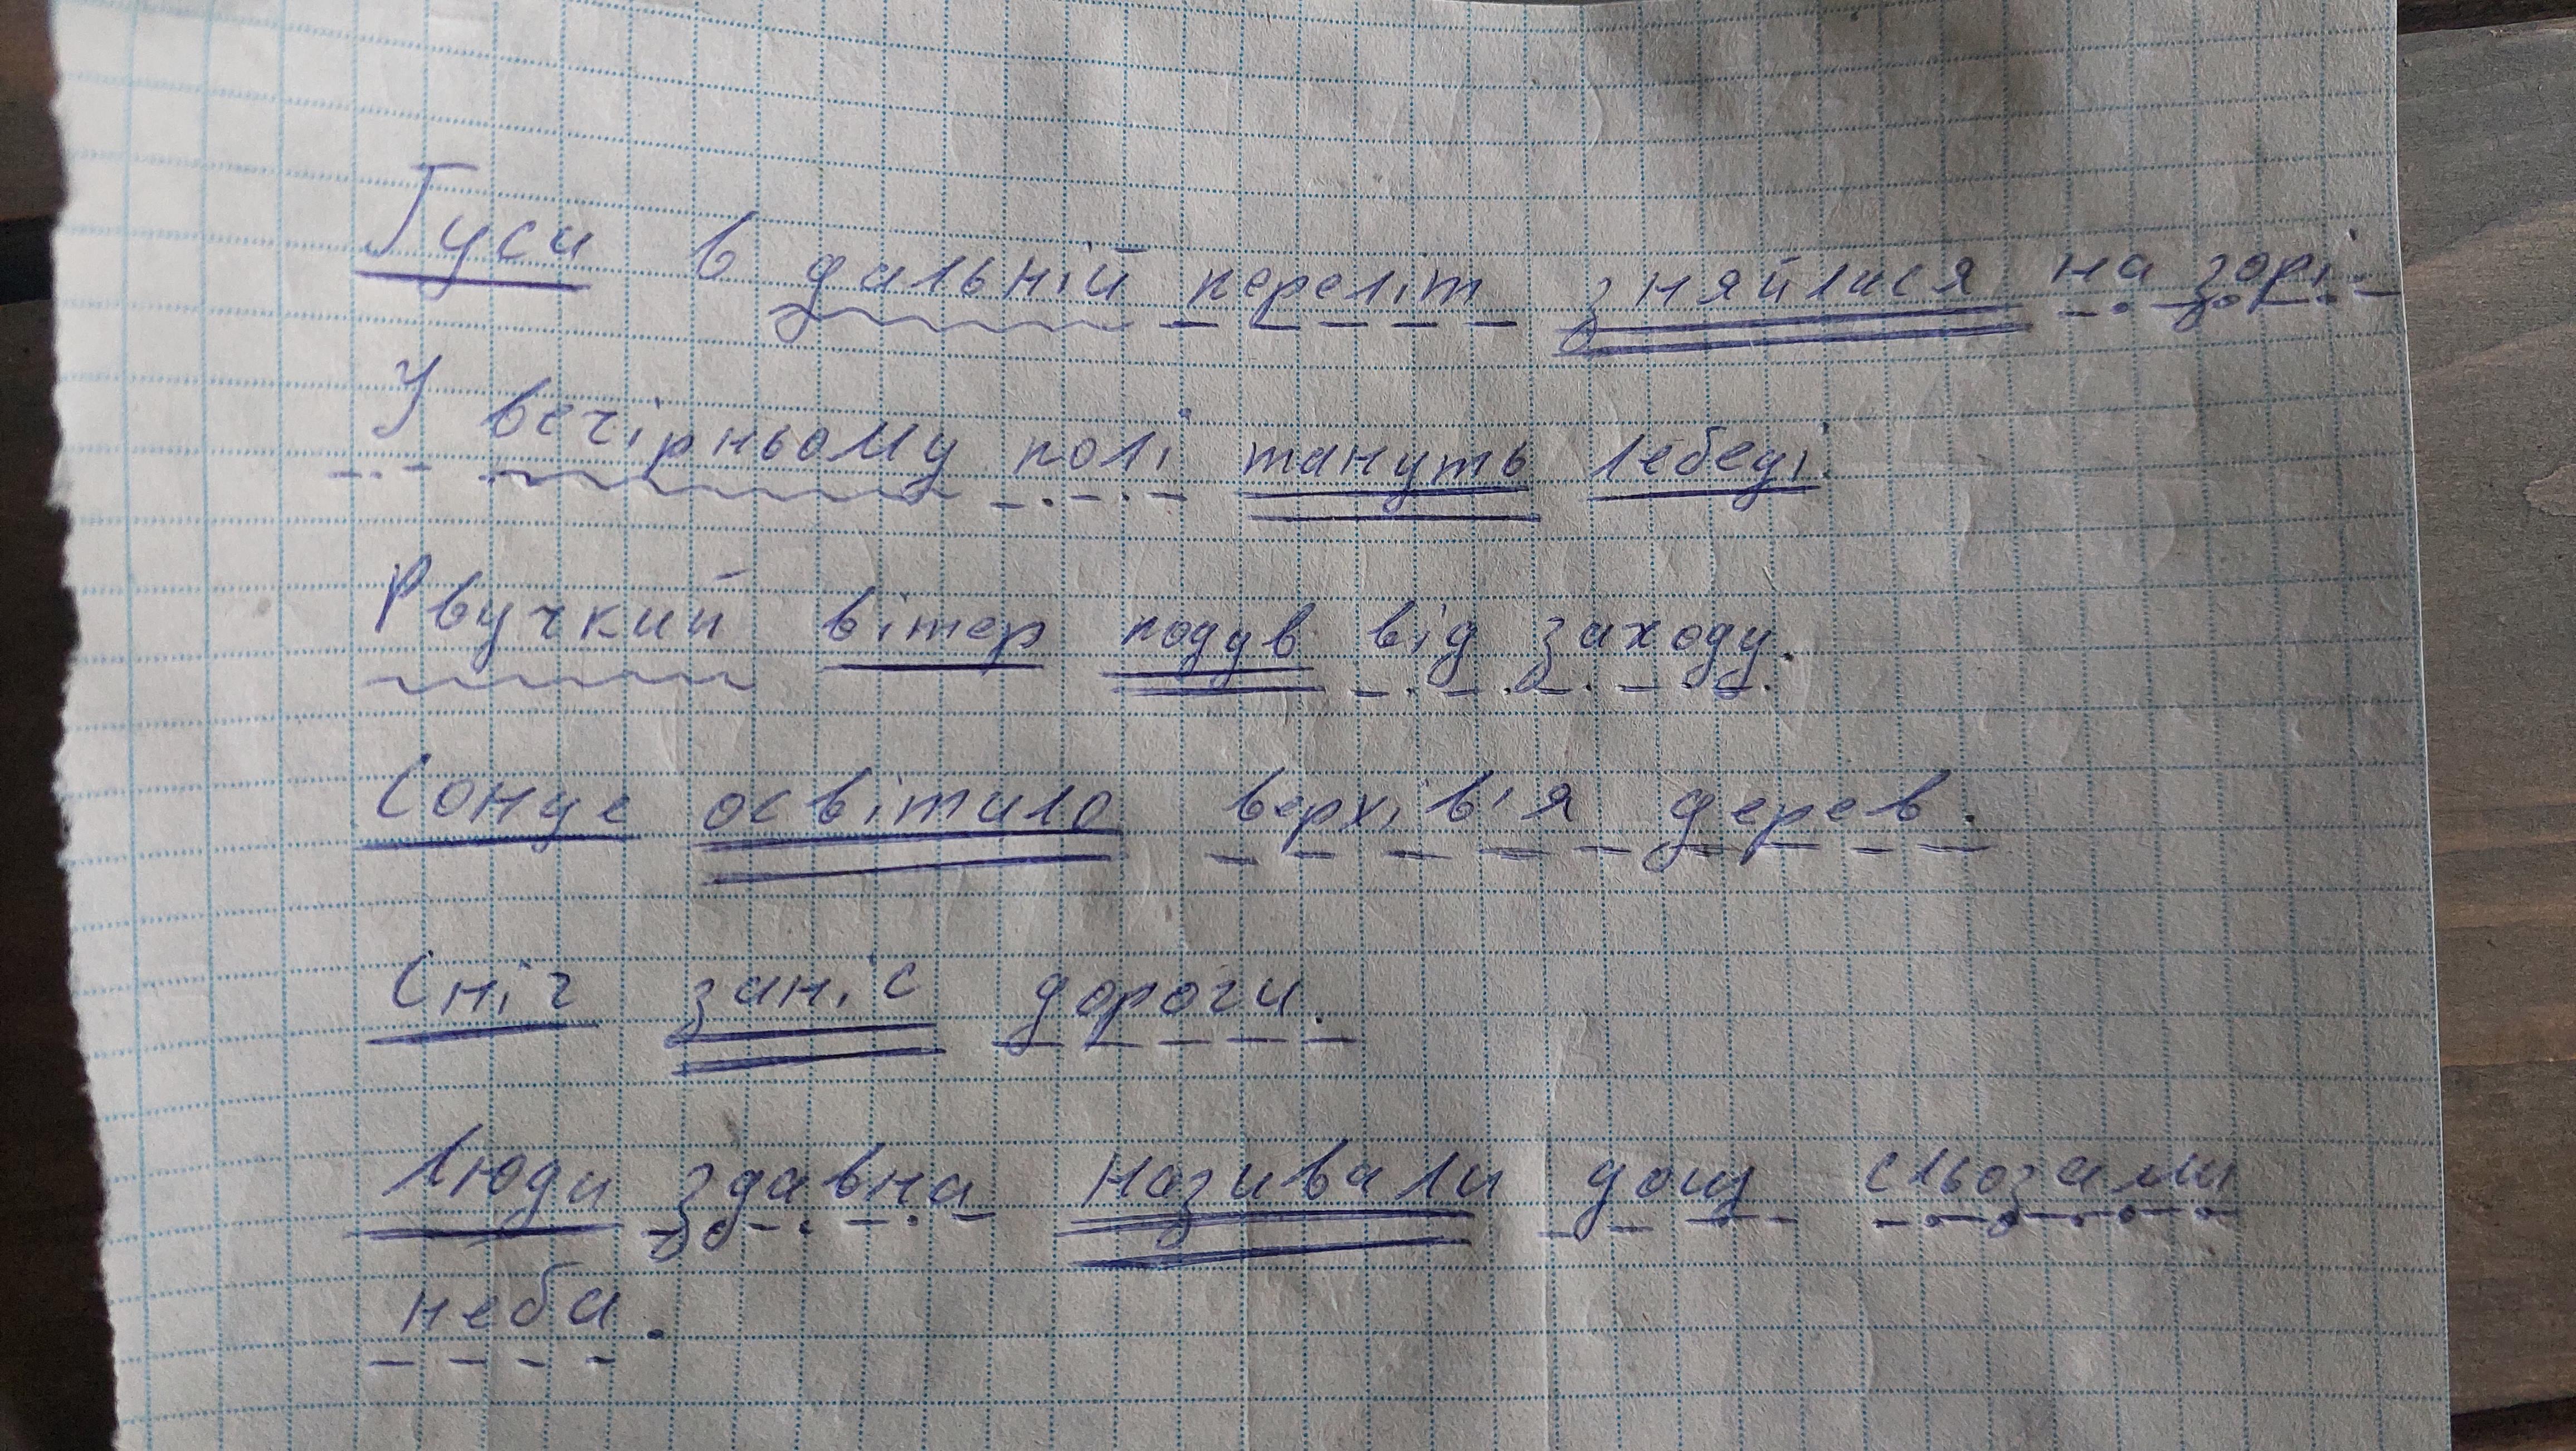 Гуси в дальній переліт знялися на зорі.
У вечірньому полі тануть лебеді.
Рвучкий вітер подув від заходу.
Сонце освітило верхів'я дерев.
Сніг заніс дороги.
Люди здавна називали дощ сльозами
неба.